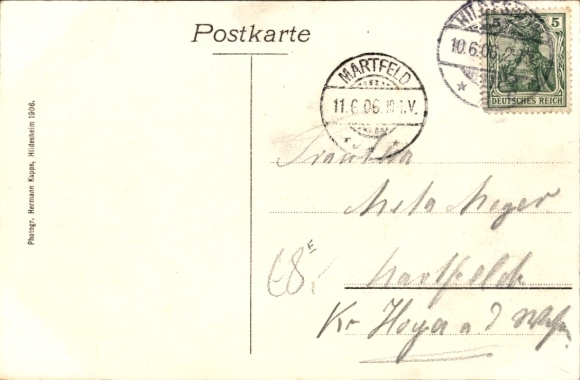 Postkarte
HILDESH
10.6.06
5 5
DEUTSCHES REICH
MARTFELD
11.6.06. 10-11.V.
Photogr. Hermann Kapps, Hildesheim 1906.
Fräulein
Meta Meyer
Martfeld
Kr Hoya a d Weser